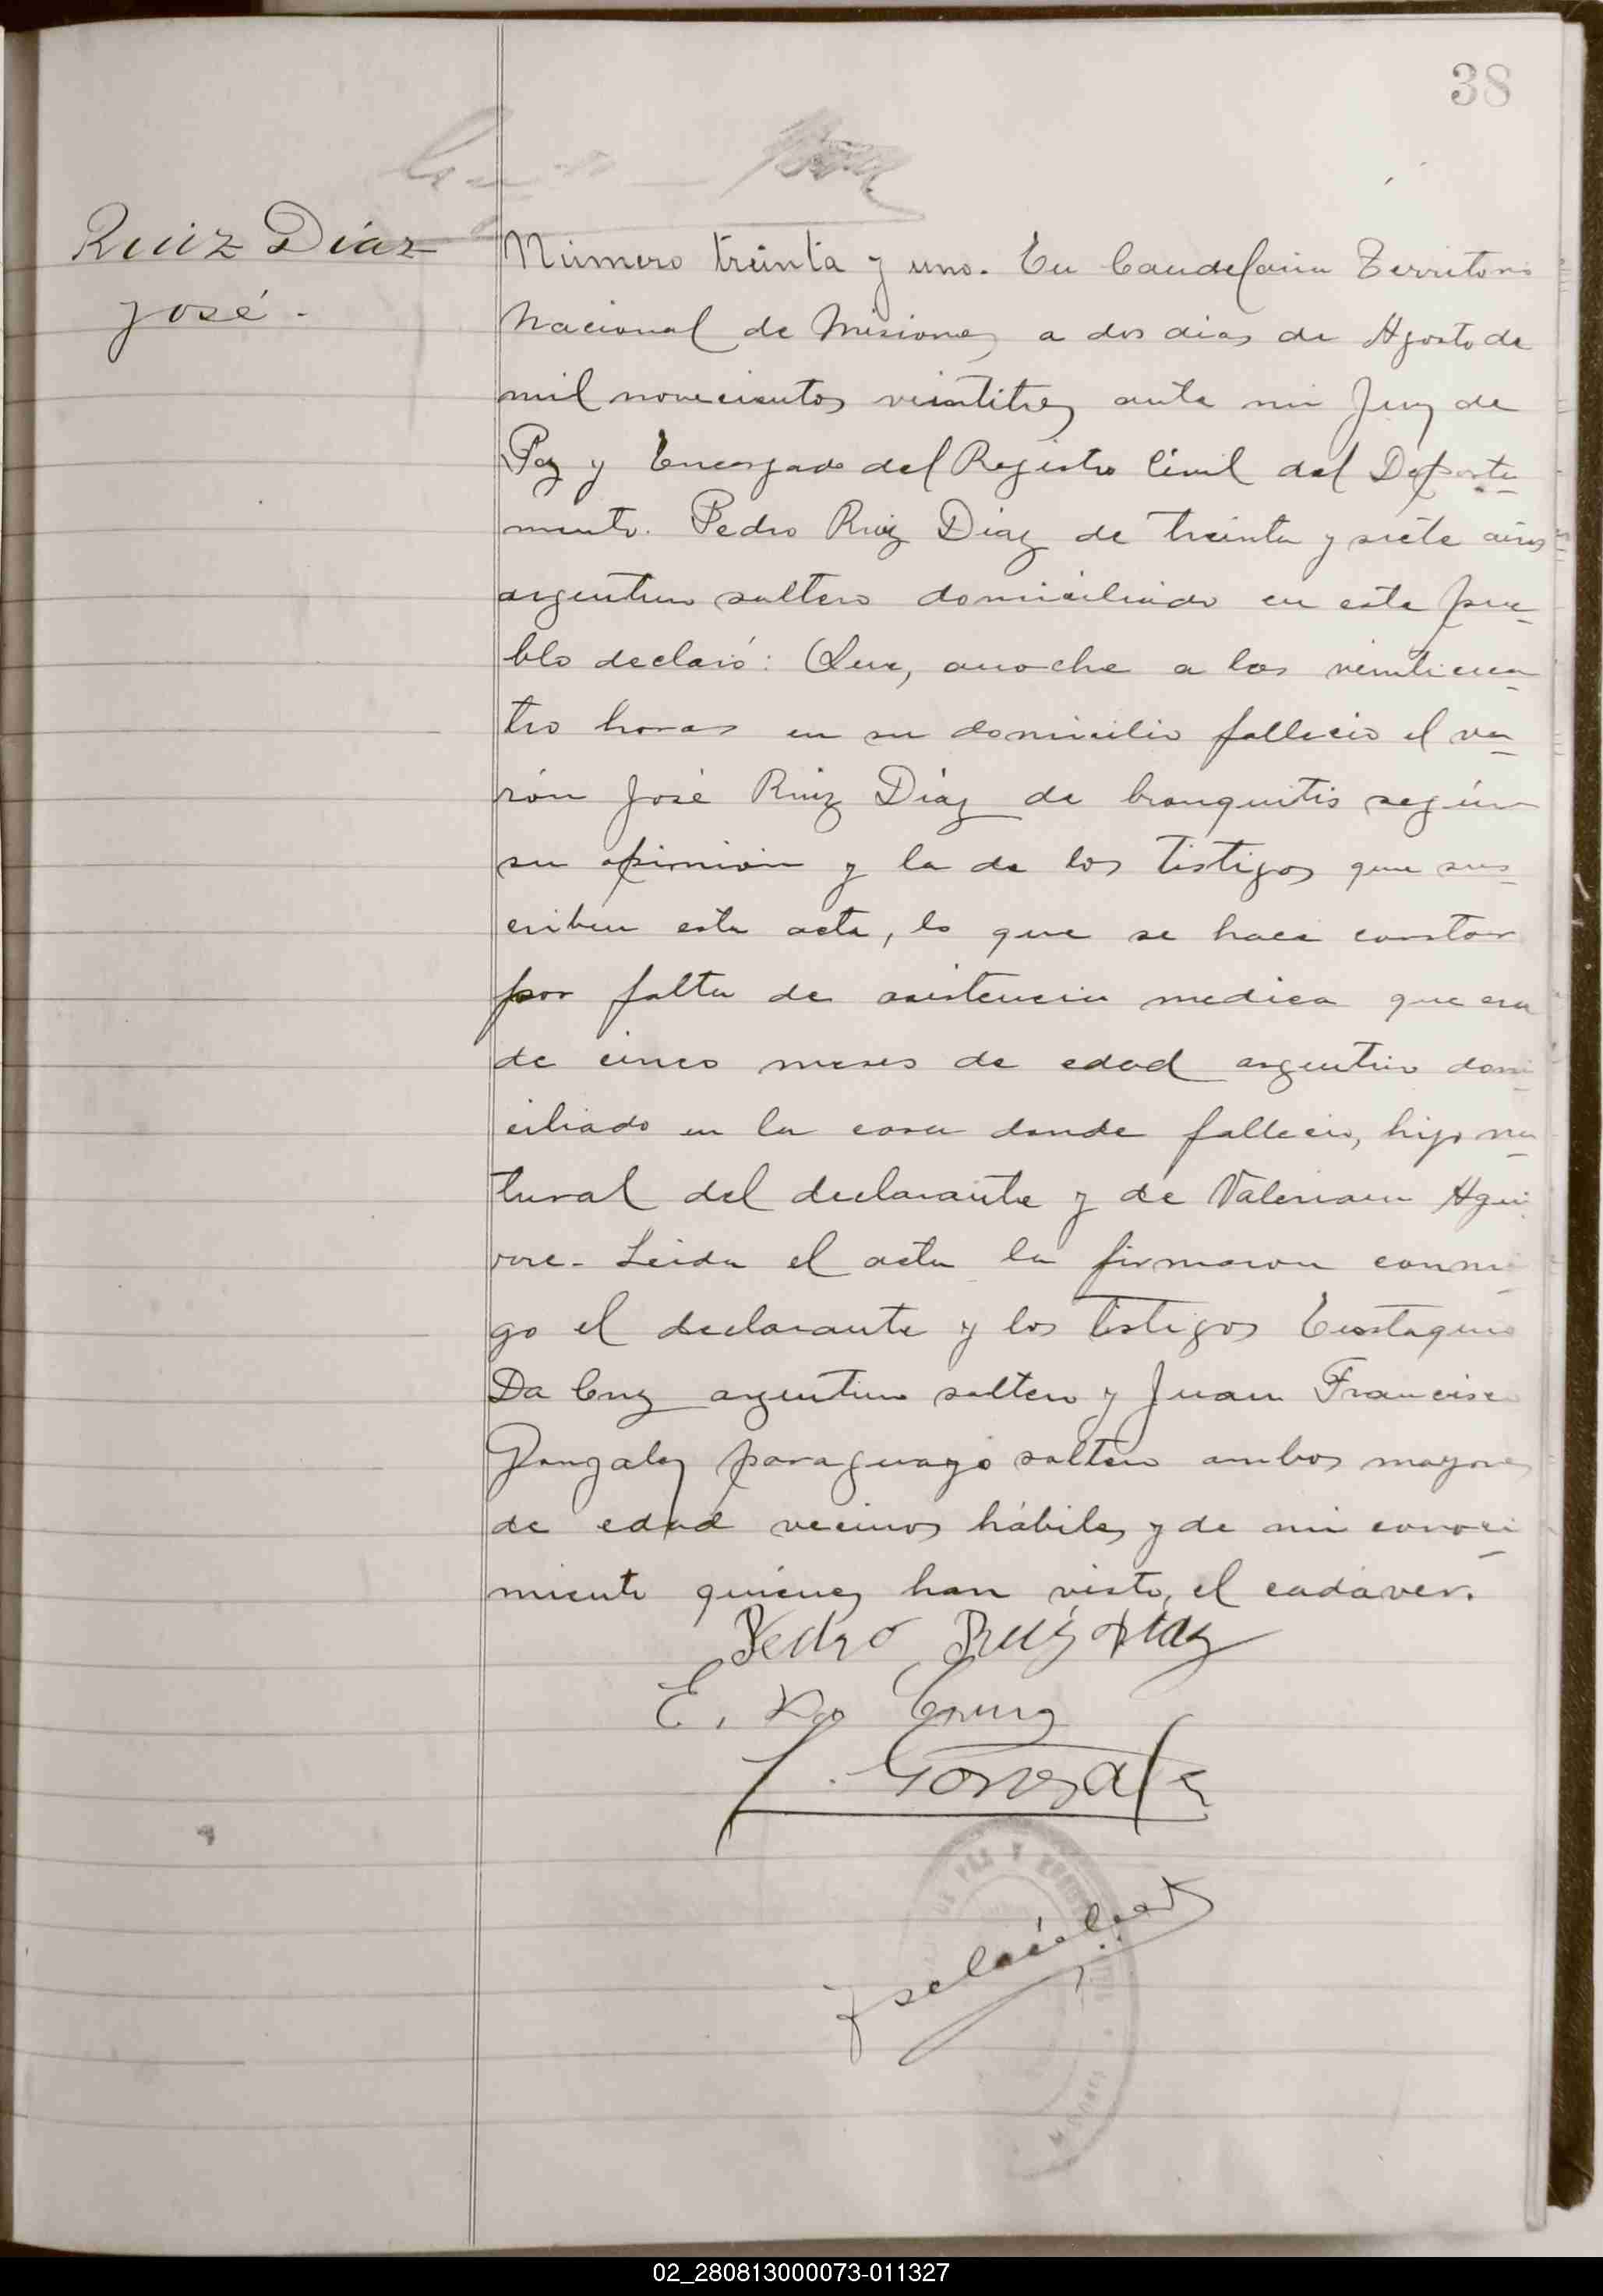 38
Ruiz Diaz
José.-
Número treinta y uno. En Candelaria Territorio
Nacional de Misiones a dos dias de Agosto de
mil novecientos veintitres ante mi Juez de
Paz y Encargado del Registro Civil del Departa-
mento. Pedro Ruiz Diaz de treinta y siete años
argentino soltero domiciliado en este pue-
blo declaró: Que, anoche a las veinticua-
tro horas en su domicilio fallecio el va-
rón José Ruiz Diaz de bronquitis según
su opinión y la de los testigos que sus-
criben esta acta, lo que se hace constar
por falta de asistencia medica que era
de cinco meses de edad argentino domi-
ciliado en la casa donde fallecio, hijo na-
tural del declarante y de Valeriana Agui-
rre. Leida el acta la firmaron conmi-
go el declarante y los testigos Eustaquio
Da Cruz argentino soltero y Juan Francisco
Gonzalez paraguayo soltero ambos mayores
de edad vecinos hábiles y de mi conoci-
miento quienes han visto, el cadáver.
Pedro Ruiz Diaz
E. Da Cruz
J. Gonzalez
MISIONES
02_280813000073-011327